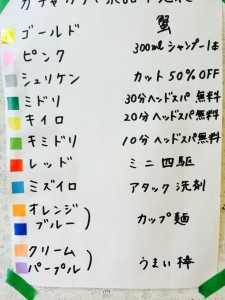 ゴールド 蟹
ピンク 300mlシャンプー1本
シュリケン カット50%OFF
ミドリ 30分ヘッドスパ無料
キイロ 20分ヘッドスパ無料
キミドリ 10分ヘッドスパ無料
レッド ミニ四駆
ミズイロ アタック洗剤
オレンジ
ブルー ) カップ麺
クリーム
パープル ) うまい棒